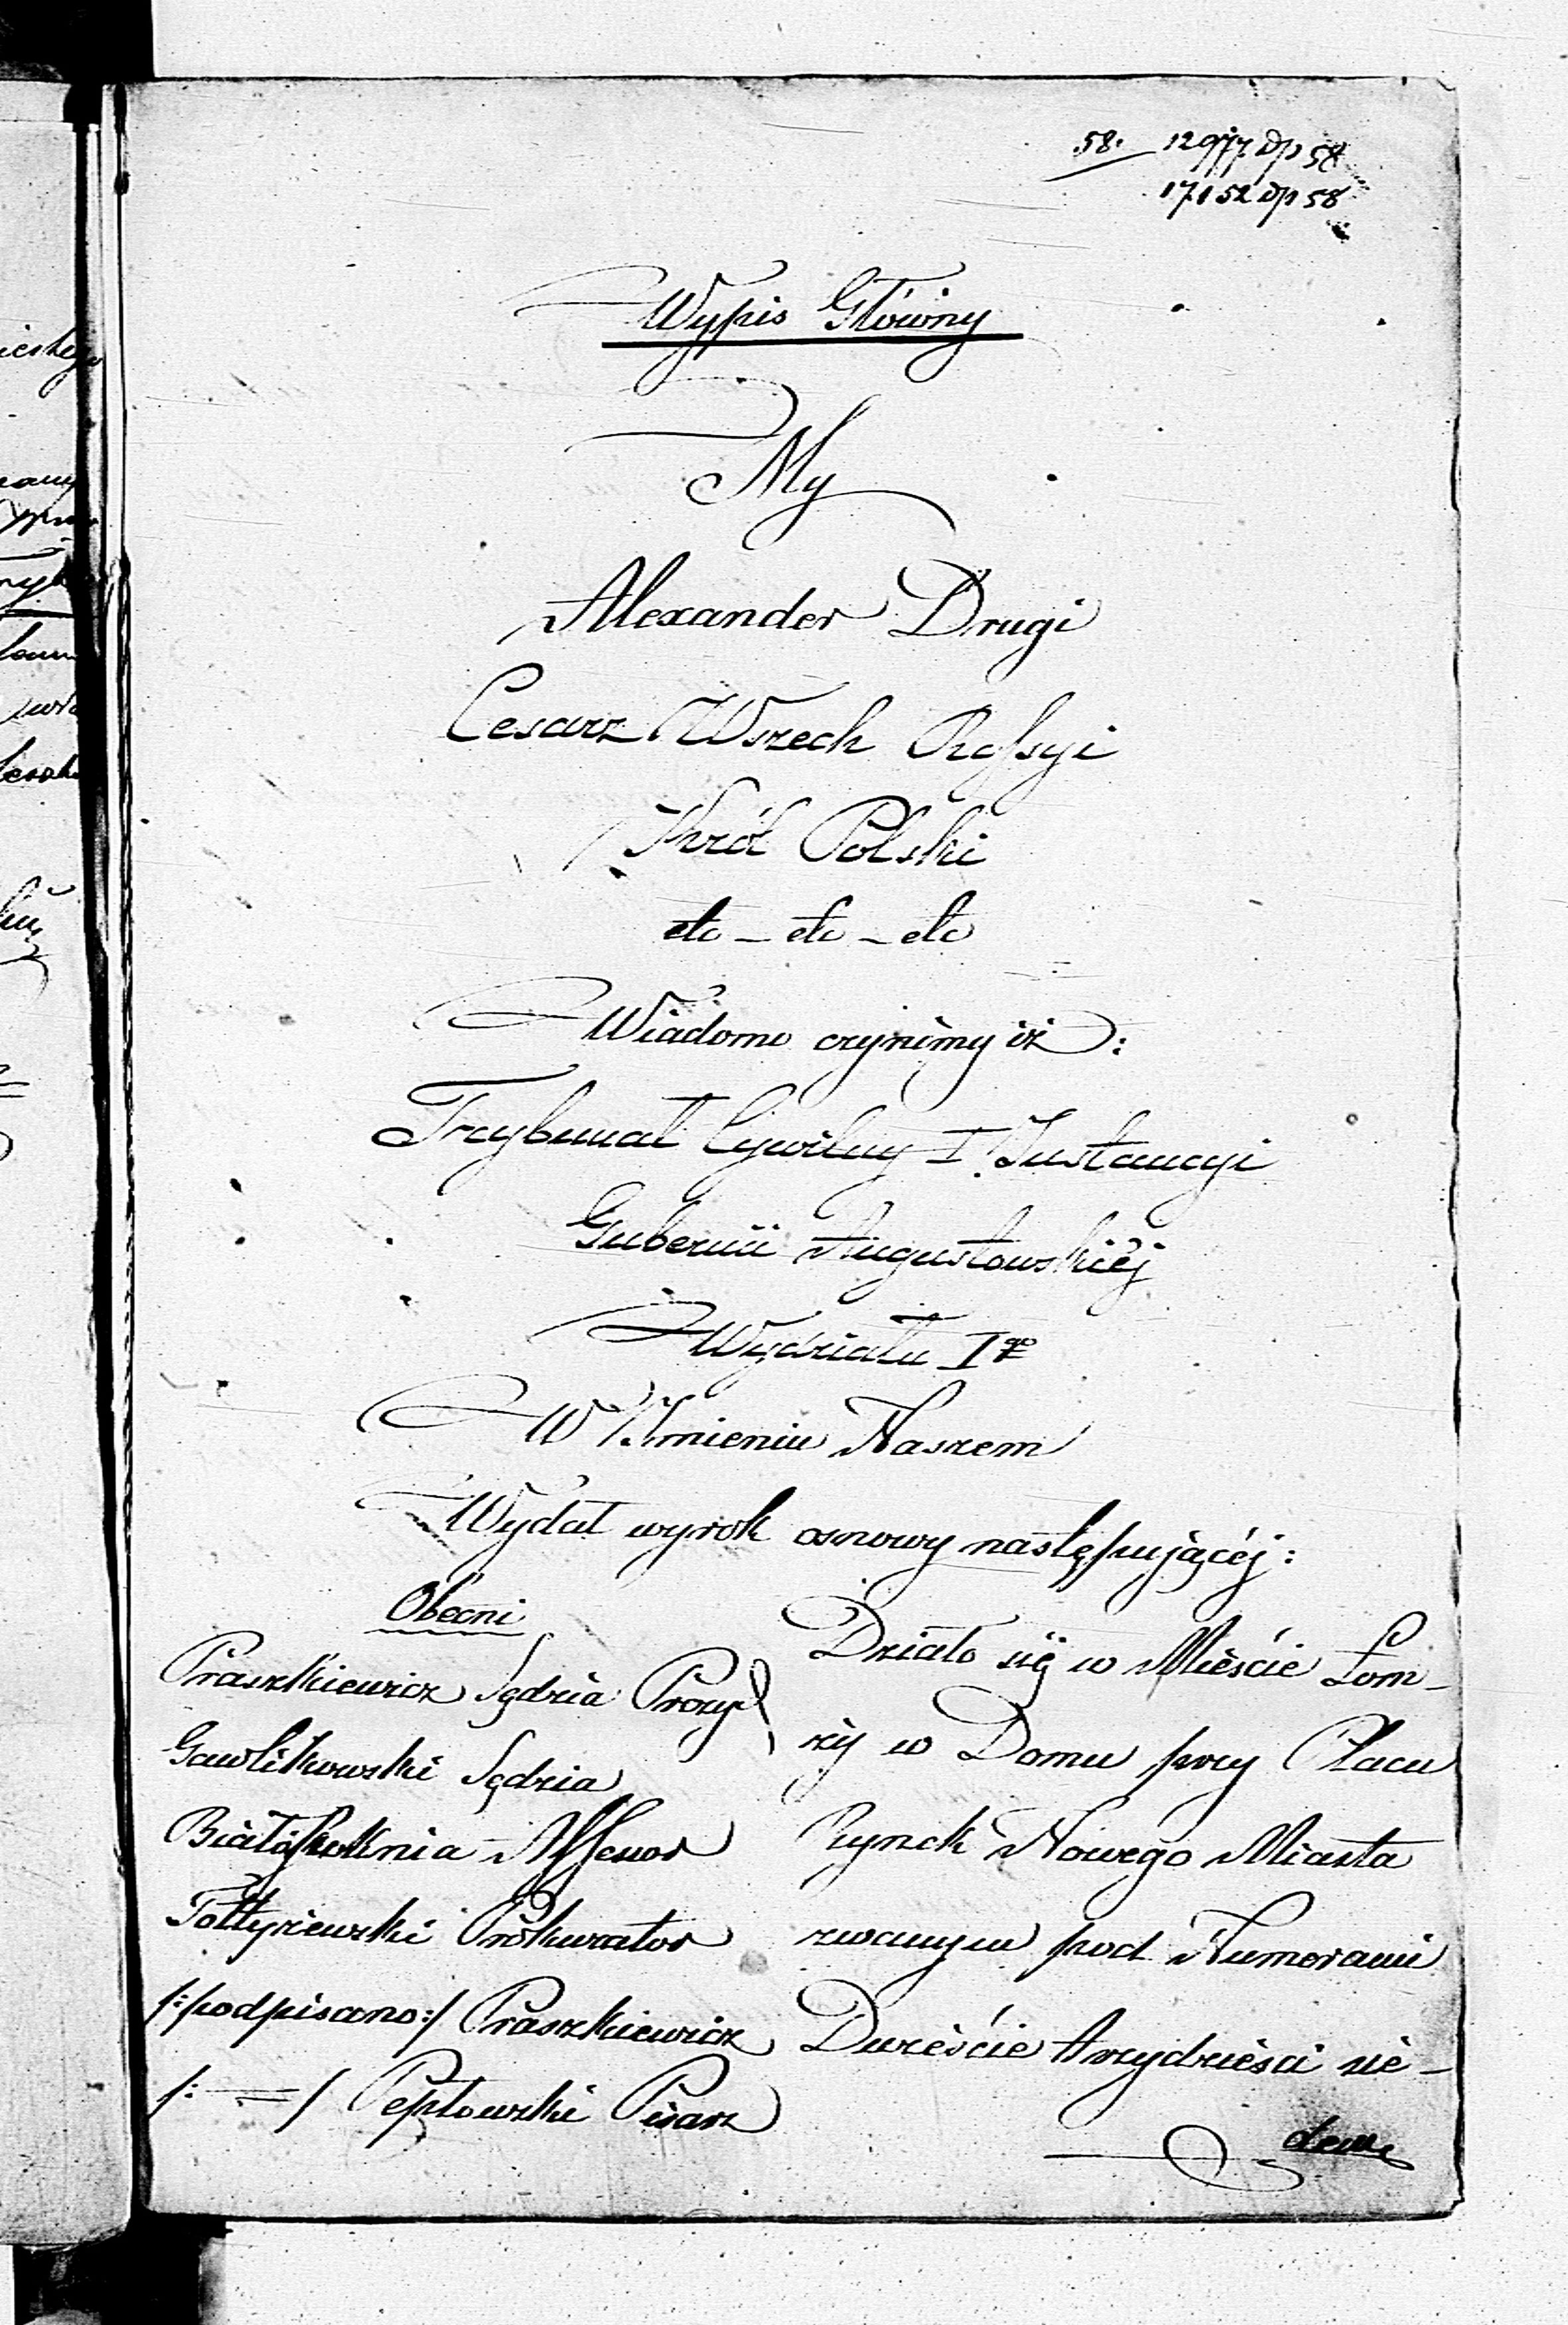 58. 12977 Dp 58
17152 Dp 58
Wypis Główny
My
Alexander Drugi
Cesarz Wszech Rossyi
Król Polski
etc – etc – etc
Wiadomo czynimy iż:
Trybunał Cywilny I. Instancyi
Gubernii Augustowskiéj
Wydziału Igo
W Imieniu Naszem
Wydał wyrok osnowy następującéj:
Obecni
Praszkiewicz Sędzia Prezyd
Gawlikowski Sędzia
Assessor
Prokurator
/:podpisano:/ Praszkiewicz
/: = / Pepłowski Pisarz
Działo się w Mieście Łom-
ży w Domu przy Placu
Rynek Nowego Miasta
zwanym pod Numerami
Dwieście trzydzieści sie-
dem